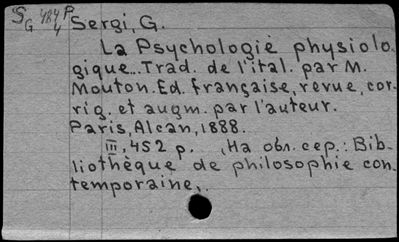 S 484 P
G 4
Sergi, G.
La Psychologie physiolo-
gique... Trad. de l'ital. par M.
Mouton. Ed. française, revue, cor-
rig. et augm. par l'auteur.
Paris, Alcan, 1888.
III, 452 p. , На обл. сер.: Bib-
liothèque de philosophie con-
temporaine,.